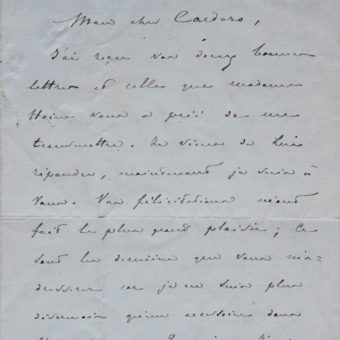 Mon cher Cardozo,
J'ai reçu vos deux bonnes
lettres et celles que madame
Heine vous a prié de me
transmettre. Je viens de lui
répondre, maintenant je suis à
vous. Vos félicitations m'ont
fait le plus grand plaisir ; ce
sont les dernières que vous m'a-
dresserez car je ne suis plus